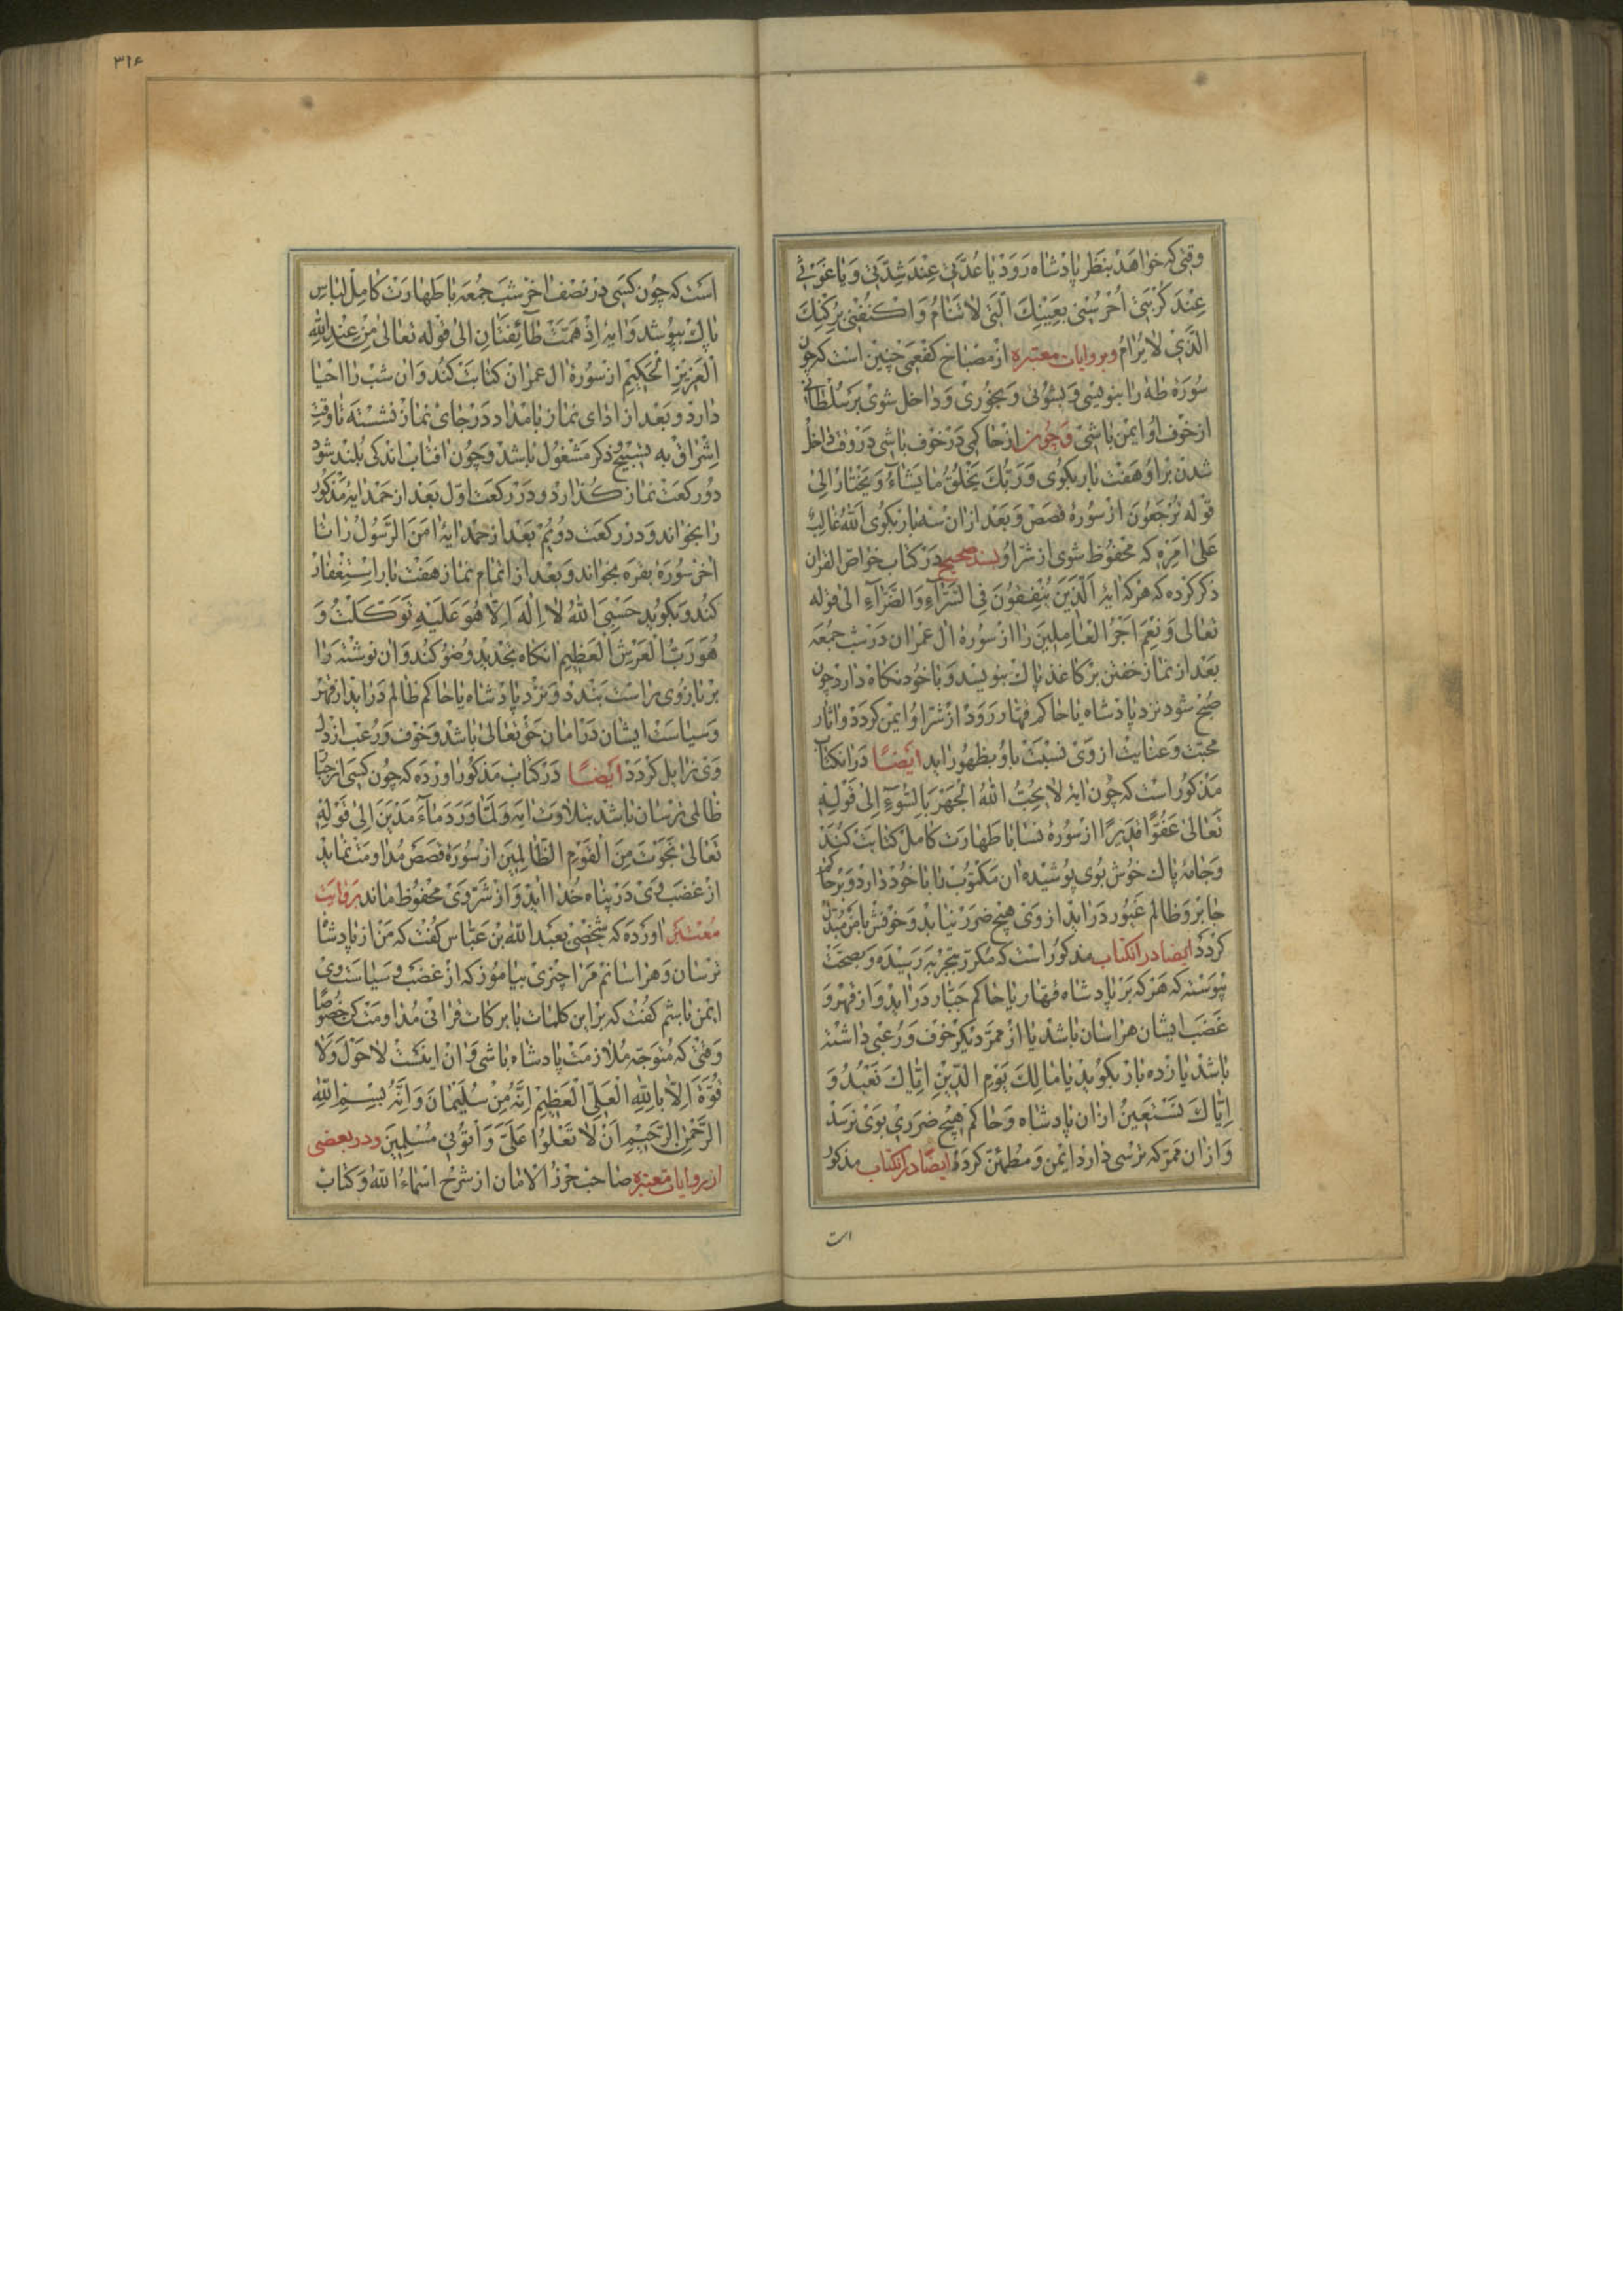 وقتی که خواهد بنظر پادشاه رود یا عُدَّتی عِنْدَ شِدَّتی وَ یا غَوْثی
عِنْدَ کُرْبَتی اُحْرُسْنی بِعَیْنِكَ الَّتی لاتَنامُ وَ اکْنُفْنی بِرُکْنِكَ
الَّذی لا یُرامُ و بروایات معتبره از مصباح کفعمی چنین است که چون
سوره طه را بنویسی و بشوئی و بخوری و داخل شوی بر سلطانی
از خوف او ایمن باشی و چون از حاکمی در خوف باشی در وقت داخل
شدن بر او هفت بار بکوی وَ رَبُّكَ یَخْلُقُ ما یَشاءُ وَ یَخْتارُ الی
قوله تُرْجَعُونَ از سوره قصص و بعد از ان سه بار بکوی اَللهُ غالِبٌ
عَلی اَمْرِهِ که محفوظ شوی از شر او بسند صحیح در کتاب خواص القران
ذکر کرده که هرکه ایه اَلَّذینَ یُنْفِقُونَ فِی السَّرّآءِ وَ الضَّرّآءِ الی قوله
تعالی وَ نِعْمَ اَجْرُ الْعامِلینَ را از سوره ال عمران در شب جمعه
بعد از نماز خفتن بر کاغذ پاك بنویسد و با خود نکاه دارد چون
صبح شود نزد پادشاه یا حاکم قهار رود از شر او ایمن کردد و اثار
محبت و عنایت از وی نسبت باو بظهور اید ایضًا در انکتاب
مذکور است که چون ایه لا یُحِبُّ اللهُ الْجَهْرَ بِالسُّوءِ اِلی قَوْلِهِ
تَعالی عَفُوًّا قَدیرًا از سوره نسا با طهارت کامل کتابت کند
و جامه پاك خوش بوی پوشیده ان مکتوب را با خود دارد و بر حاکم
جابر و ظالم غیور در اید از وی هیچ ضرر نیابد و خوفش بامن مبدل
کردد ایضا در انکتاب مذکور است که مکرر بتجربه رسیده و بصحت
پیوسته که هرکه بر پادشاه قهار یا حاکم جبار در اید و از قهر و
غضب ایشان هراسان باشد یا از ممر دیکر خوف و رعبی داشته
باشد یازده بار بکوید یا مالِكَ یَوْمِ الدّینِ اِیّاكَ نَعْبُدُ وَ
اِیّاكَ نَسْتَعینُ از ان پادشاه و حاکم هیچ ضرری بوی نرسد
و از ان ممر که ترسی دارد ایمن و مطمئن کردد ایضًا در انکتاب مذکور
است
۳۱۶
است که چون کسی در نصف اخر شب جمعه با طهارت کامل لباس
پاك بپوشد و ایه اِذْ هَمَّتْ طآئِفَتانِ الی قوله تعالی مِنْ عِنْدِ اللهِ
الْعَزیزِ الْحَکیمِ از سوره ال عمران کتابت کند و ان شب را احیا
دارد و بعد از ادای نماز بامداد در جای نماز نشسته تا وقت
اشراق به تسبیح و ذکر مشغول باشد و چون افتاب اندکی بلند شود
دو رکعت نماز کذارد و در رکعت اول بعد از حمد ایه مذکور
را بخواند و در رکعت دویم بعد از حمد ایه امَنَ الرَّسُولُ را تا
اخر سوره بقره بخواند و بعد از اتمام نماز هفت بار استغفار
کند و بکوید حَسْبِیَ اللهُ لا اِلهَ اِلّا هُوَ عَلَیْهِ تَوَکَّلْتُ وَ
هُوَ رَبُّ الْعَرْشِ الْعَظیمِ انکاه تجدید وضو کند و ان نوشته را
بر بازوی راست بندد و نزد پادشاه یا حاکم ظالم در اید از قهر
و سیاست ایشان در امان حق تعالی باشد و خوف و رعب از دل
وی زایل کردد ایضًا در کتاب مذکور اورده که چون کسی از جبّار
ظالمی ترسان باشد بتلاوت ایه وَ لَمّا وَرَدَ مآءَ مَدْیَنَ اِلی قَوْلِهِ
تَعالی نَجَوْتَ مِنَ الْقَوْمِ الظّالِمینَ از سوره قصص مداومت نماید
از غضب وی در پناه خدا اید و از شر وی محفوظ ماند بروایت
معتبر اورده که شخصی بعبد الله بن عباس کفت که من از پادشاه
ترسان و هراسانم مرا چیزی بیاموز که از غضب و سیاست وی
ایمن باشم کفت که بر این کلمات با برکات قرانی مداومت کن خصوصًا
وقتی که متوجه ملازمت پادشاه باشی و ان اینست لا حَوْلَ وَ لا
قُوَّةَ اِلّا بِاللهِ الْعَلِیِّ الْعَظیمِ اِنَّهُ مِنْ سُلَیْمانَ وَ اِنَّهُ بِسْمِ اللهِ
الرَّحْمنِ الرَّحیمِ اَنْ لا تَعْلُوا عَلَیَّ وَ اْتُونی مُسْلِمینَ و در بعضی
از روایات معتبره صاحب حرز الامان از شرح اسماء الله و کتاب